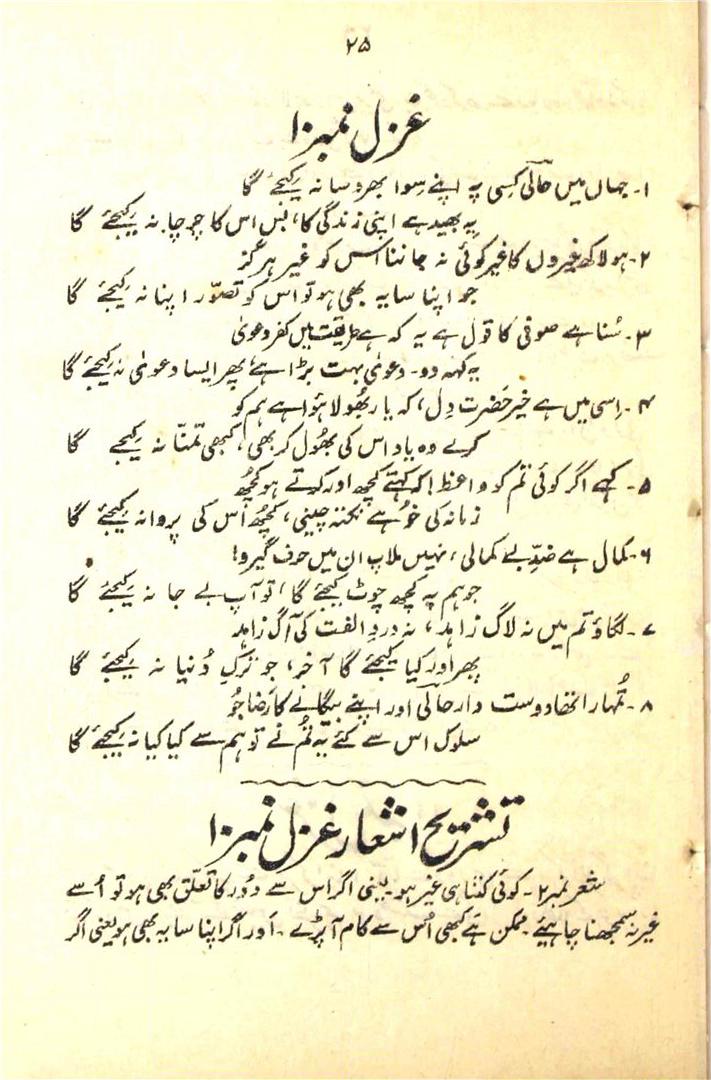 ۲۵
غزل نمبر ۱۰
۱۔ جہاں میں حالیؔ کِسی پہ اپنے سِوا بھروسا نہ کیجئے گا
یہ بھید ہے اپنی زندگی کا، بس اس کا چرچا نہ کیجئے گا
۲۔ ہو لاکھ غیروں کا غیر کوئی نہ جاننا اس کو غیر ہرگز
جو اپنا سایہ بھی ہو تو اس کو تصوّر اپنا نہ کیجئے گا
۳۔ سُنا ہے صوفی کا قول ہے یہ کہ ہے طریقت میں کفر دعویٰ
یہ کہہ دو۔ دعویٰ بہت بڑا ہے، پھر ایسا دعویٰ نہ کیجئے گا
۴۔ اِسی میں ہے خیر حَضرتِ دِل، کہ یار بھُولا ہؤا ہے ہم کو
کرے وہ یاد اس کی بھُول کر بھی، کبھی تمنّا نہ کیجے گا
۵۔ کہے اگر کوئی تُم کو واعظ! کہ کہتے کچھ اور کرتے ہو کچُھ
زمانہ کی خُو ہے نکتہ چینی، کچُھ اس کی پروا نہ کیجئے گا
۶۔ کمال ہے ضدِّ بے کمالی، نہیں ملاپ ان میں حرف گیرو!
جو ہم پہ کچھ چوٹ کیجئے گا، تو آپ بے جا نہ کیجئے گا
۷۔ لگاؤ تم میں نہ لاگ زاہد، نہ دردِ الفت کی آگ زاہد
پھر اور کیا کیجئے گا آخر، جو ترکِ دُنیا نہ کیجئے گا
۸۔ تُمہارا تھا دوست دار حالیؔ اور اپنے بیگانے کا رَضا جُو
سلوک اس سے کئے یہ تُم نے تو ہم سے کیا کیا نہ کیجئے گا
تشریح اشعار غزل نمبر ۱۰
شعر نمبر ۲۔ کوئی کتنا ہی غیر ہو۔ یعنی اگر اس سے دُور کا تعلّق بھی ہو تو اُسے
غیر نہ سمجھنا چاہیئے۔ ممکن ہے کبھی اُس سے کام آ پڑے۔ اَور اگر اپنا سایہ بھی ہو یعنی اگر